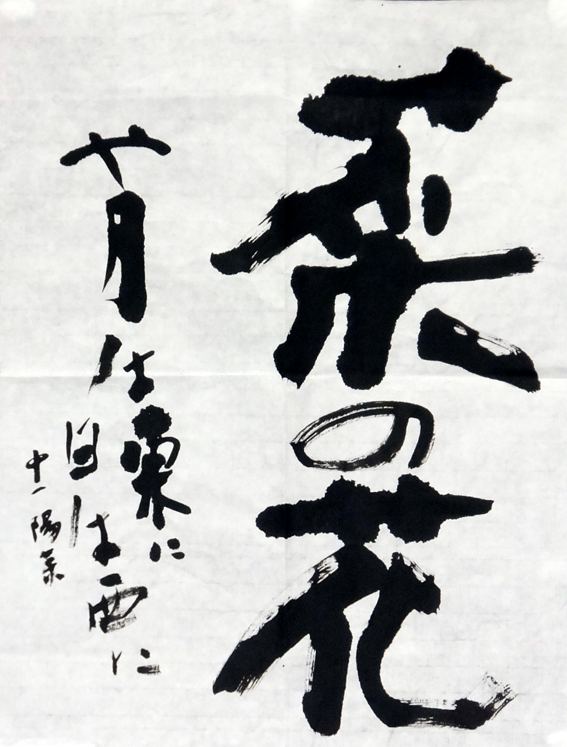 菜の花
や月は東に
日は西に
中一 陽菜